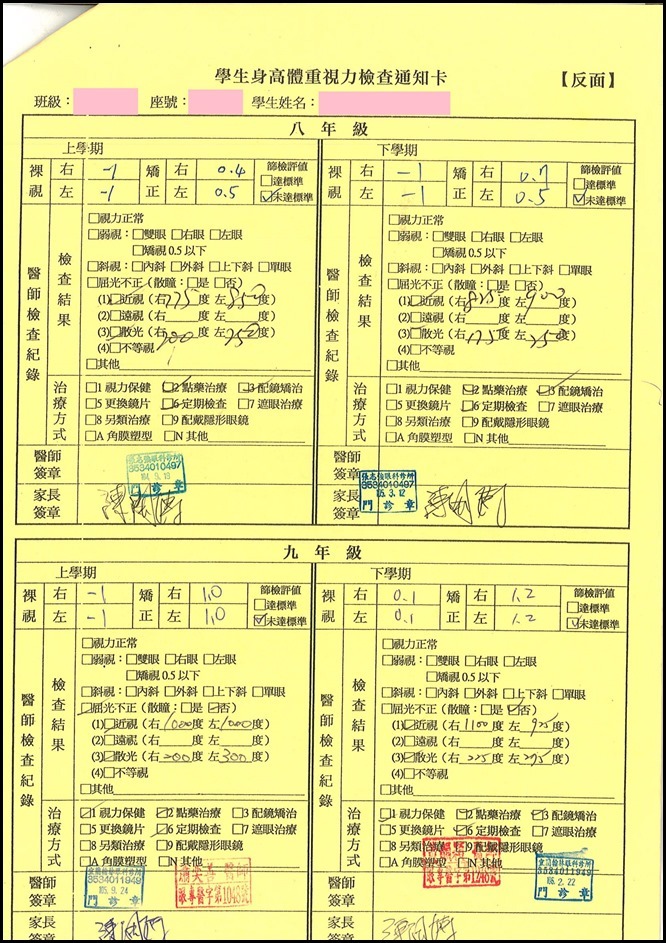 學生身高體重視力檢查通知卡 【反面】
班級： 座號： 學生姓名：
八年級
上學期
裸視 右 -1 矯正 右 0.4 篩檢評值
左 -1 左 0.5 □達標準
☑未達標準
醫師檢查紀錄
檢查結果
□視力正常
□弱視：□雙眼 □右眼 □左眼
□矯視 0.5 以下
□斜視：□內斜 □外斜 □上下斜 □單眼
□屈光不正（散瞳：□是 □否）
(1)□近視（右775度 左850度）
(2)□遠視（右 度 左 度）
(3)□散光（右200度 左250度）
(4)□不等視
□其他
治療方式
□1 視力保健 ☑2 點藥治療 ☑3 配鏡矯治
□5 更換鏡片 ☑6 定期檢查 □7 遮眼治療
□8 另類治療 □9 配戴隱形眼鏡
□A 角膜塑型 □N 其他
醫師簽章
3534010497
門診章
家長簽章
下學期
裸視 右 -1 矯正 右 0.7 篩檢評值
左 -1 左 0.5 □達標準
☑未達標準
醫師檢查紀錄
檢查結果
□視力正常
□弱視：□雙眼 □右眼 □左眼
□矯視 0.5 以下
□斜視：□內斜 □外斜 □上下斜 □單眼
□屈光不正（散瞳：□是 □否）
(1)□近視（右825度 左900度）
(2)□遠視（右 度 左 度）
(3)□散光（右175度 左250度）
(4)□不等視
□其他
治療方式
□1 視力保健 ☑2 點藥治療 ☑3 配鏡矯治
□5 更換鏡片 ☑6 定期檢查 □7 遮眼治療
□8 另類治療 □9 配戴隱形眼鏡
□A 角膜塑型 □N 其他
醫師簽章
3534010497
105.3.12
門診章
家長簽章
九年級
上學期
裸視 右 -1 矯正 右 1.0 篩檢評值
左 -1 左 1.0 □達標準
☑未達標準
醫師檢查紀錄
檢查結果
□視力正常
□弱視：□雙眼 □右眼 □左眼
□矯視 0.5 以下
□斜視：□內斜 □外斜 □上下斜 □單眼
☑屈光不正（散瞳：□是 ☑否）
(1)☑近視（右1000度 左1000度）
(2)□遠視（右 度 左 度）
(3)☑散光（右200度 左300度）
(4)□不等視
□其他
治療方式
☑1 視力保健 ☑2 點藥治療 □3 配鏡矯治
□5 更換鏡片 ☑6 定期檢查 □7 遮眼治療
□8 另類治療 □9 配戴隱形眼鏡
□A 角膜塑型 □N 其他
醫師簽章
3534011949
105.9.24
門診章
家長簽章
下學期
裸視 右 0.1 矯正 右 1.2 篩檢評值
左 0.1 左 1.2 □達標準
☑未達標準
醫師檢查紀錄
檢查結果
□視力正常
□弱視：□雙眼 □右眼 □左眼
□矯視 0.5 以下
□斜視：□內斜 □外斜 □上下斜 □單眼
☑屈光不正（散瞳：□是 ☑否）
(1)☑近視（右1100度 左925度）
(2)□遠視（右 度 左 度）
(3)☑散光（右225度 左275度）
(4)□不等視
□其他
治療方式
☑1 視力保健 ☑2 點藥治療 ☑3 配鏡矯治
□5 更換鏡片 ☑6 定期檢查 □7 遮眼治療
□8 另類治療 □9 配戴隱形眼鏡
□A 角膜塑型 □N 其他
醫師簽章
3534011949
門診章
家長